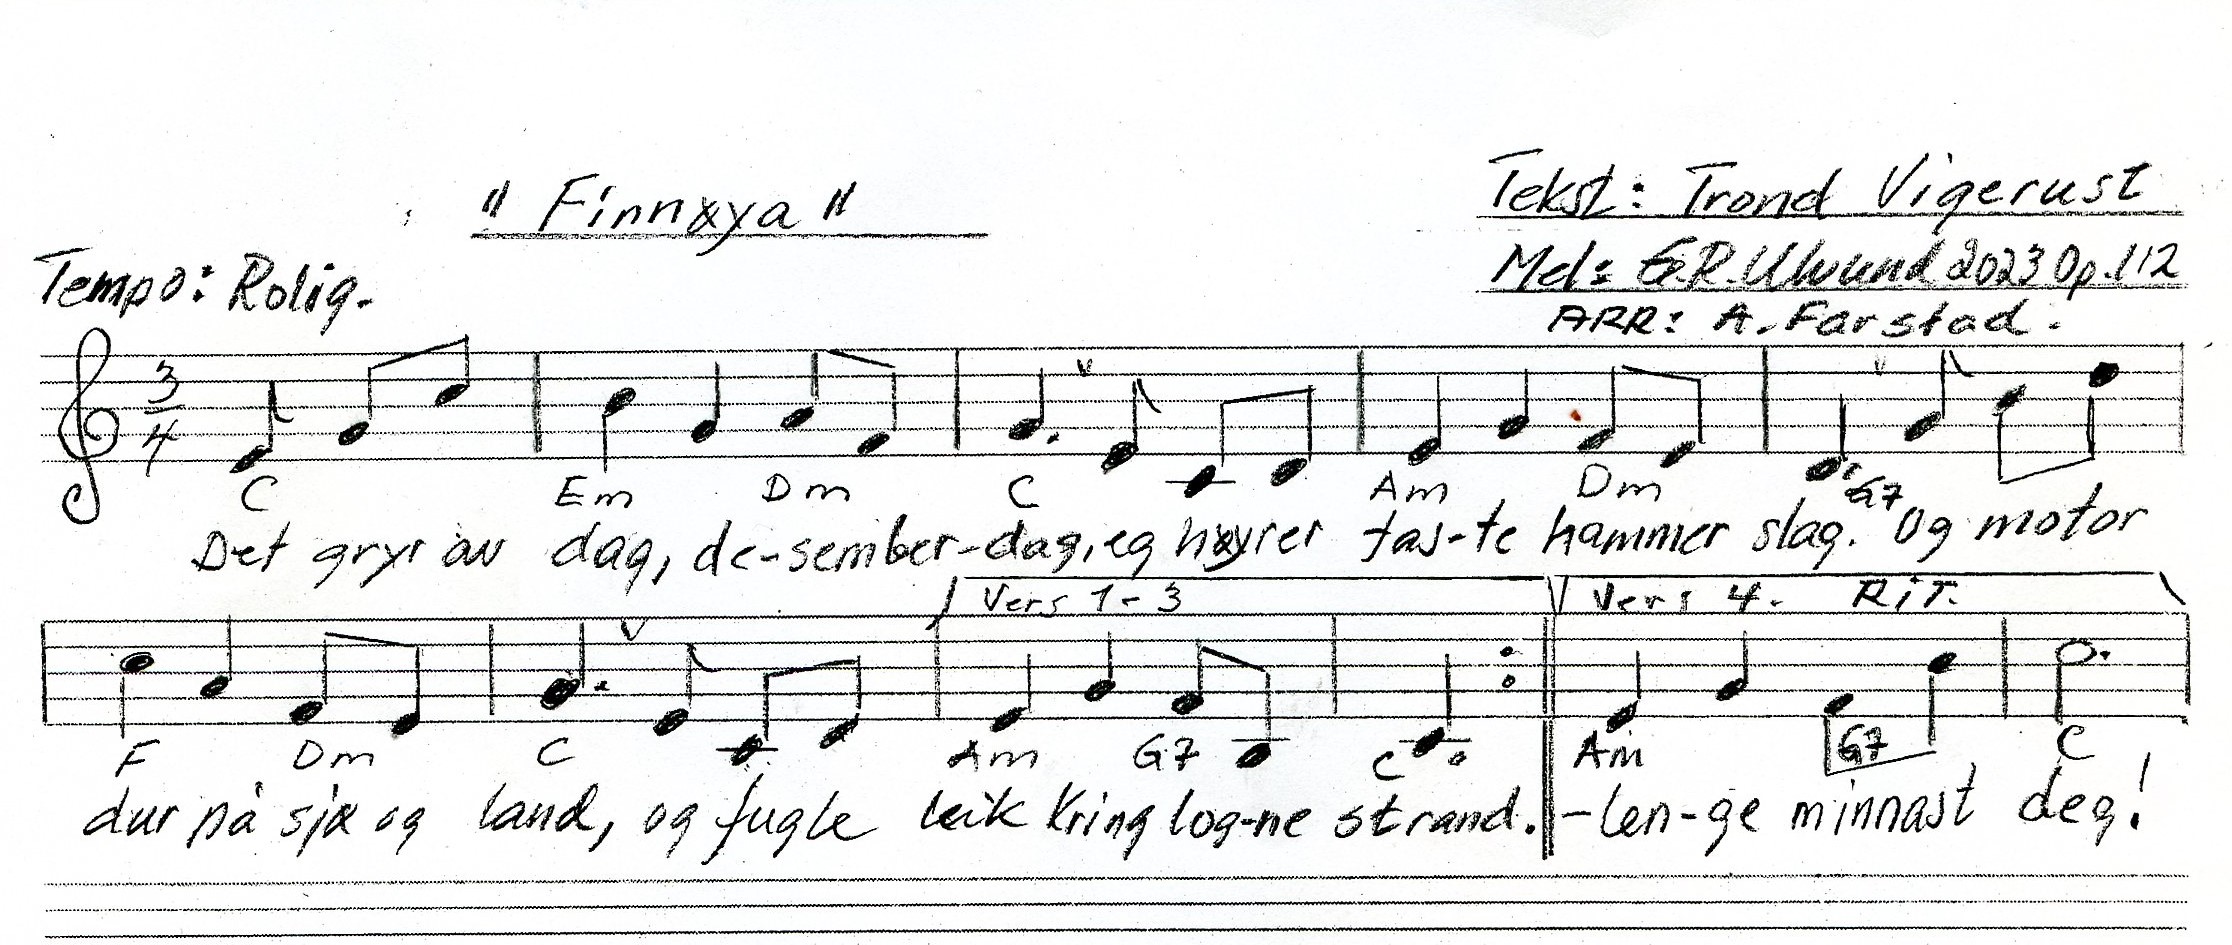 "Finnøya"
Tekst: Trond Vigerust
Mel: G.R. Ulvund 2023 Op. 112
ARR: A. Farstad.
Tempo: Rolig.
3/4
C Em Dm C Am Dm G7
Det gryr av dag, de-sember-dag, eg høyrer fas-te hammer slag. Og motor
Vers 1-3 Vers 4. RiT.
F Dm C Am G7 C Am G7 C
dur på sjø og land, og fugle leik kring log-ne strand. -len-ge minnast deg!